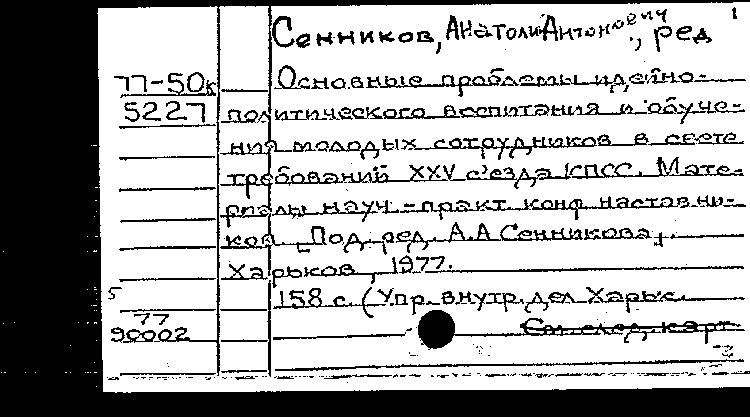 1
Сенников, Анатолий Антонович, ред
77-50к Основные проблемы идейно-
5227 политического воспитания и обуче-
ния молодых сотрудников в свете
требований XXV съезда КПСС. Мате-
риалы науч.-практ. конф. наставни-
ков. [Под. ред. А.А Сенникова].
Харьков, 1977.
5 158 с. (Упр. внутр. дел Харьк.
77
90002 См. след. карт